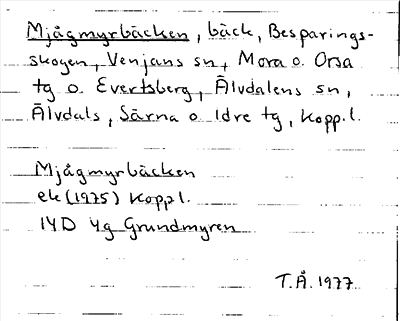 Mjågmyrbäcken, bäck, Besparings-
skogen, Venjans sn, Mora o. Orsa
tg o. Evertsberg, Älvdalens sn,
Älvdals, Särna o Idre tg, Kopp.l.
Mjågmyrbäcken
ek (1975) Koppl.
14D 4g Grundmyren
T.Å. 1977